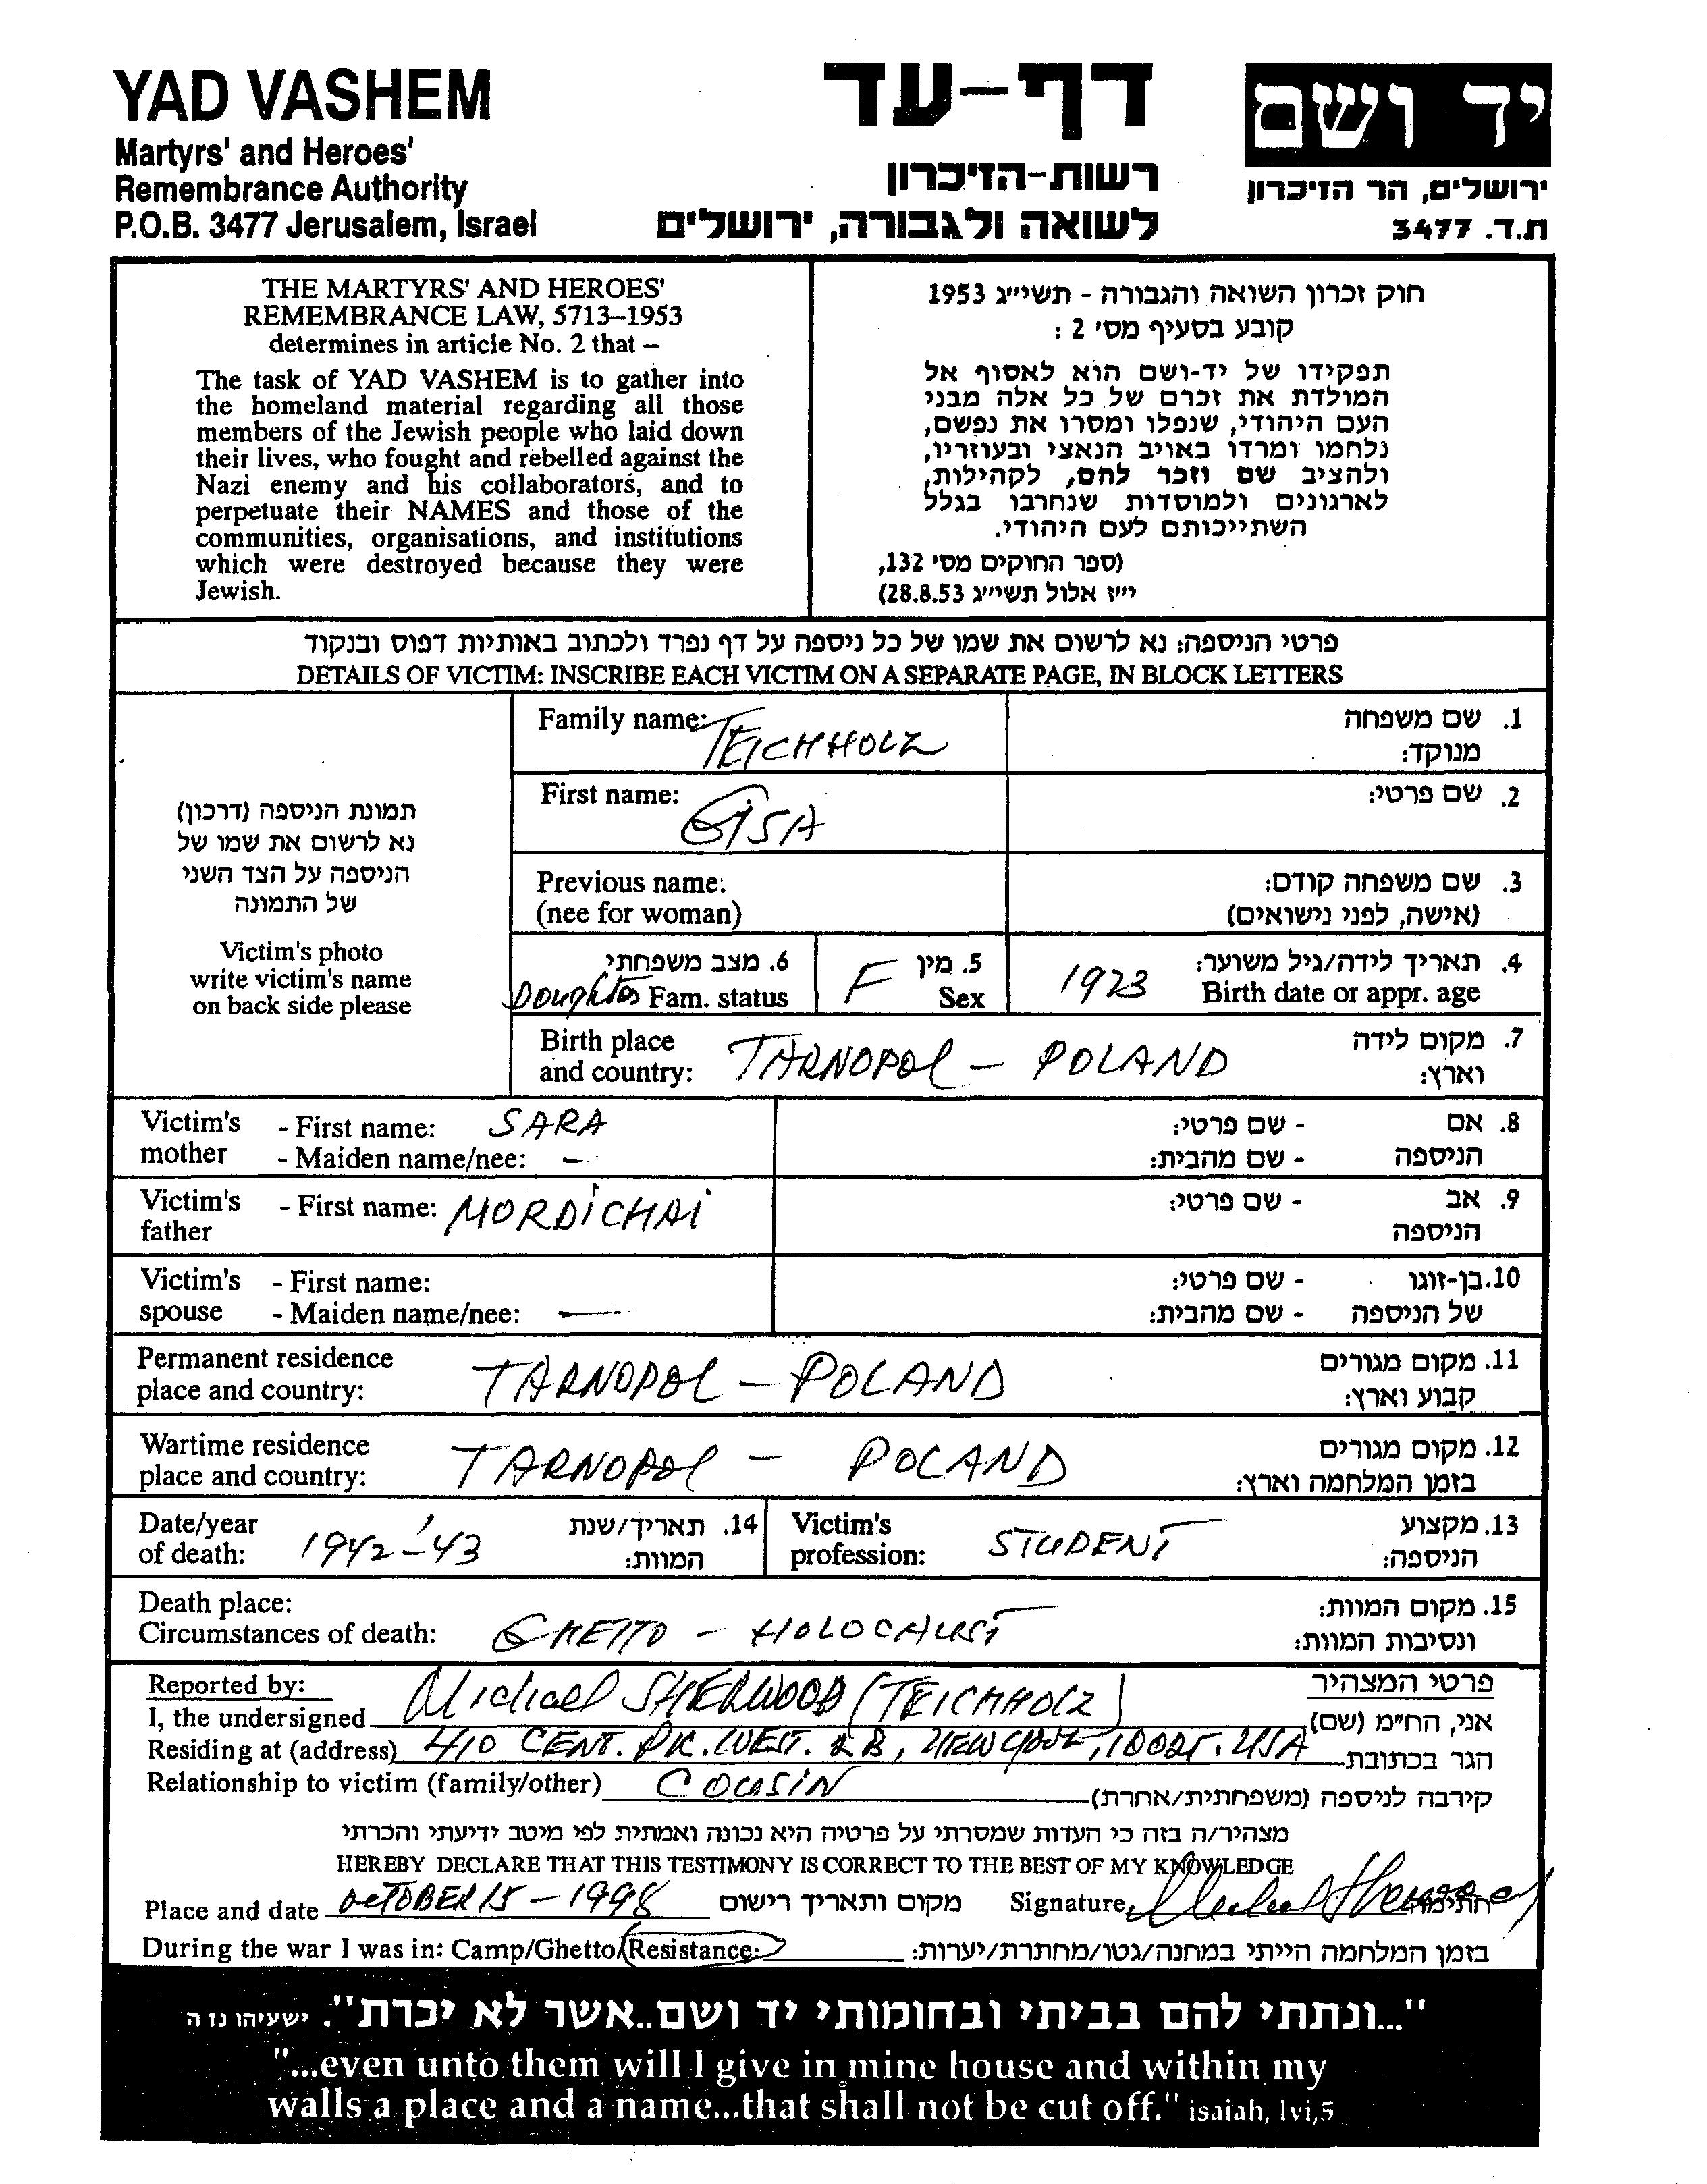 YAD VASHEM
Martyrs' and Heroes'
Remembrance Authority
P.O.B. 3477 Jerusalem, Israel
דף-עד
רשות-הזיכרון
לשואה ולגבורה, ירושלים
יד ושם
ירושלים, הר הזיכרון
ת.ד. 3477
THE MARTYRS' AND HEROES'
REMEMBRANCE LAW, 5713–1953
determines in article No. 2 that –
The task of YAD VASHEM is to gather into
the homeland material regarding all those
members of the Jewish people who laid down
their lives, who fought and rebelled against the
Nazi enemy and his collaborators, and to
perpetuate their NAMES and those of the
communities, organisations, and institutions
which were destroyed because they were
Jewish.
חוק זכרון השואה והגבורה - תשי״ג 1953
קובע בסעיף מס׳ 2 :
תפקידו של יד-ושם הוא לאסוף אל
המולדת את זכרם של כל אלה מבני
העם היהודי, שנפלו ומסרו את נפשם,
נלחמו ומרדו באויב הנאצי ובעוזריו,
ולהציב שם וזכר להם, לקהילות,
לארגונים ולמוסדות שנחרבו בגלל
השתייכותם לעם היהודי.
(ספר החוקים מס׳ 132,
י״ז אלול תשי״ג 28.8.53)
פרטי הניספה: נא לרשום את שמו של כל ניספה על דף נפרד ולכתוב באותיות דפוס ובנקוד
DETAILS OF VICTIM: INSCRIBE EACH VICTIM ON A SEPARATE PAGE, IN BLOCK LETTERS
תמונת הניספה (דרכון)
נא לרשום את שמו של
הניספה על הצד השני
של התמונה
Victim's photo
write victim's name
on back side please
Family name: TEICHHOLZ
1. שם משפחה
מנוקד:
First name: GISA
2. שם פרטי:
Previous name:
(nee for woman)
3. שם משפחה קודם:
(אישה, לפני נישואים)
6. מצב משפחתי
Doughter Fam. status
5. מין
F Sex
4. תאריך לידה/גיל משוער:
1923 Birth date or appr. age
Birth place
and country: TARNOPOL – POLAND
7. מקום לידה
וארץ:
Victim's - First name: SARA
mother - Maiden name/nee: –
8. אם - שם פרטי:
הניספה - שם מהבית:
Victim's - First name: MORDICHAI
father
9. אב - שם פרטי:
הניספה
Victim's - First name:
spouse - Maiden name/nee: —
10. בן-זוגו - שם פרטי:
של הניספה - שם מהבית:
Permanent residence
place and country: TARNOPOL – POLAND
11. מקום מגורים
קבוע וארץ:
Wartime residence
place and country: TARNOPOL – POLAND
12. מקום מגורים
בזמן המלחמה וארץ:
Date/year
of death: 1942-'43
14. תאריך/שנת
המוות:
Victim's
profession: STUDENT
13. מקצוע
הניספה:
Death place:
Circumstances of death: GHETTO – HOLOCAUST
15. מקום המוות:
ונסיבות המוות:
Reported by:
פרטי המצהיר
I, the undersigned Michael SHERWOOD (TEICHHOLZ) אני, הח״מ (שם)
Residing at (address) 410 CENT. PK. WEST. 2B, NEW YORK, 10025, USA הגר בכתובת
Relationship to victim (family/other) COUSIN קירבה לניספה (משפחתית/אחרת)
מצהיר/ה בזה כי העדות שמסרתי על פרטיה היא נכונה ואמתית לפי מיטב ידיעתי והכרתי
HEREBY DECLARE THAT THIS TESTIMONY IS CORRECT TO THE BEST OF MY KNOWLEDGE
Place and date OCTOBER 15 – 1998 מקום ותאריך רישום Signature Michael Sherwood חתימה
During the war I was in: Camp/Ghetto/Resistance: בזמן המלחמה הייתי במחנה/גטו/מחתרת/יערות:
"...ונתתי להם בביתי ובחומותי יד ושם..אשר לא יכרת". ישעיהו נו ה
"...even unto them will I give in mine house and within my
walls a place and a name...that shall not be cut off." isaiah, lvi,5